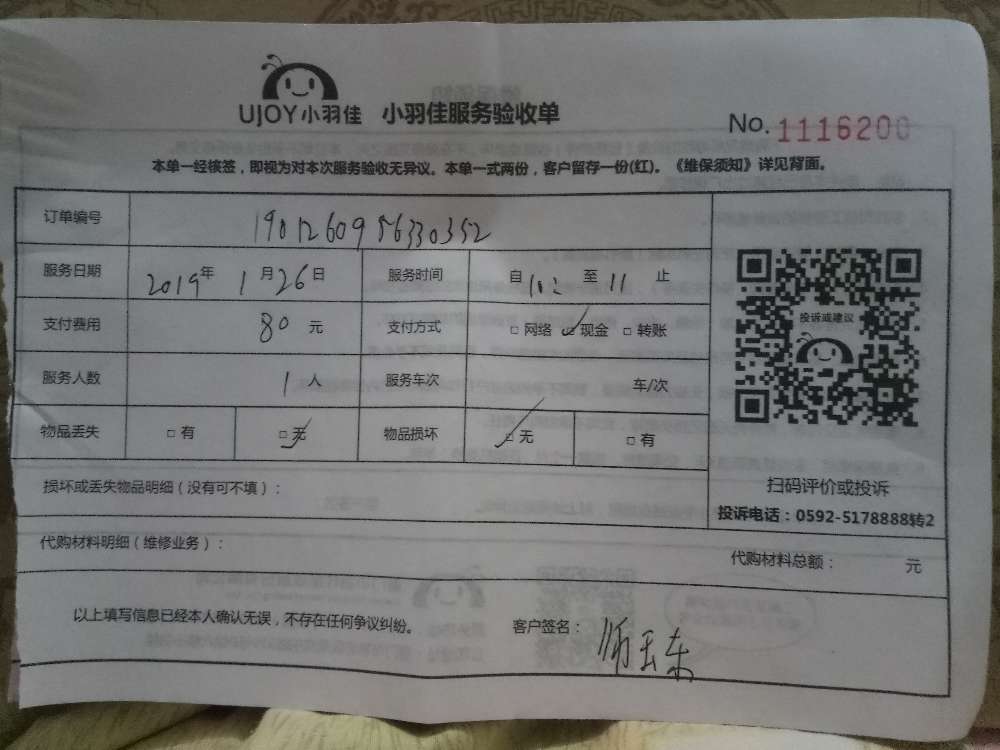 UJOY小羽佳 小羽佳服务验收单
No. 1116200
本单一经核签，即视为对本次服务验收无异议。本单一式两份，客户留存一份(红)。《维保须知》详见背面。
订单编号 1901260956330352
服务日期 2019年 1月26日 服务时间 自 至 11 止
支付费用 80 元 支付方式 □ 网络 ☑ 现金 □ 转账
服务人数 1 人 服务车次 车/次
物品丢失 □ 有 ☑ 无 物品损坏 ☑ 无 □ 有
投诉或建议
扫码评价或投诉
投诉电话：0592-5178888转2
损坏或丢失物品明细（没有可不填）：
代购材料明细（维修业务）： 代购材料总额： 元
以上填写信息已经本人确认无误，不存在任何争议纠纷。 客户签名：